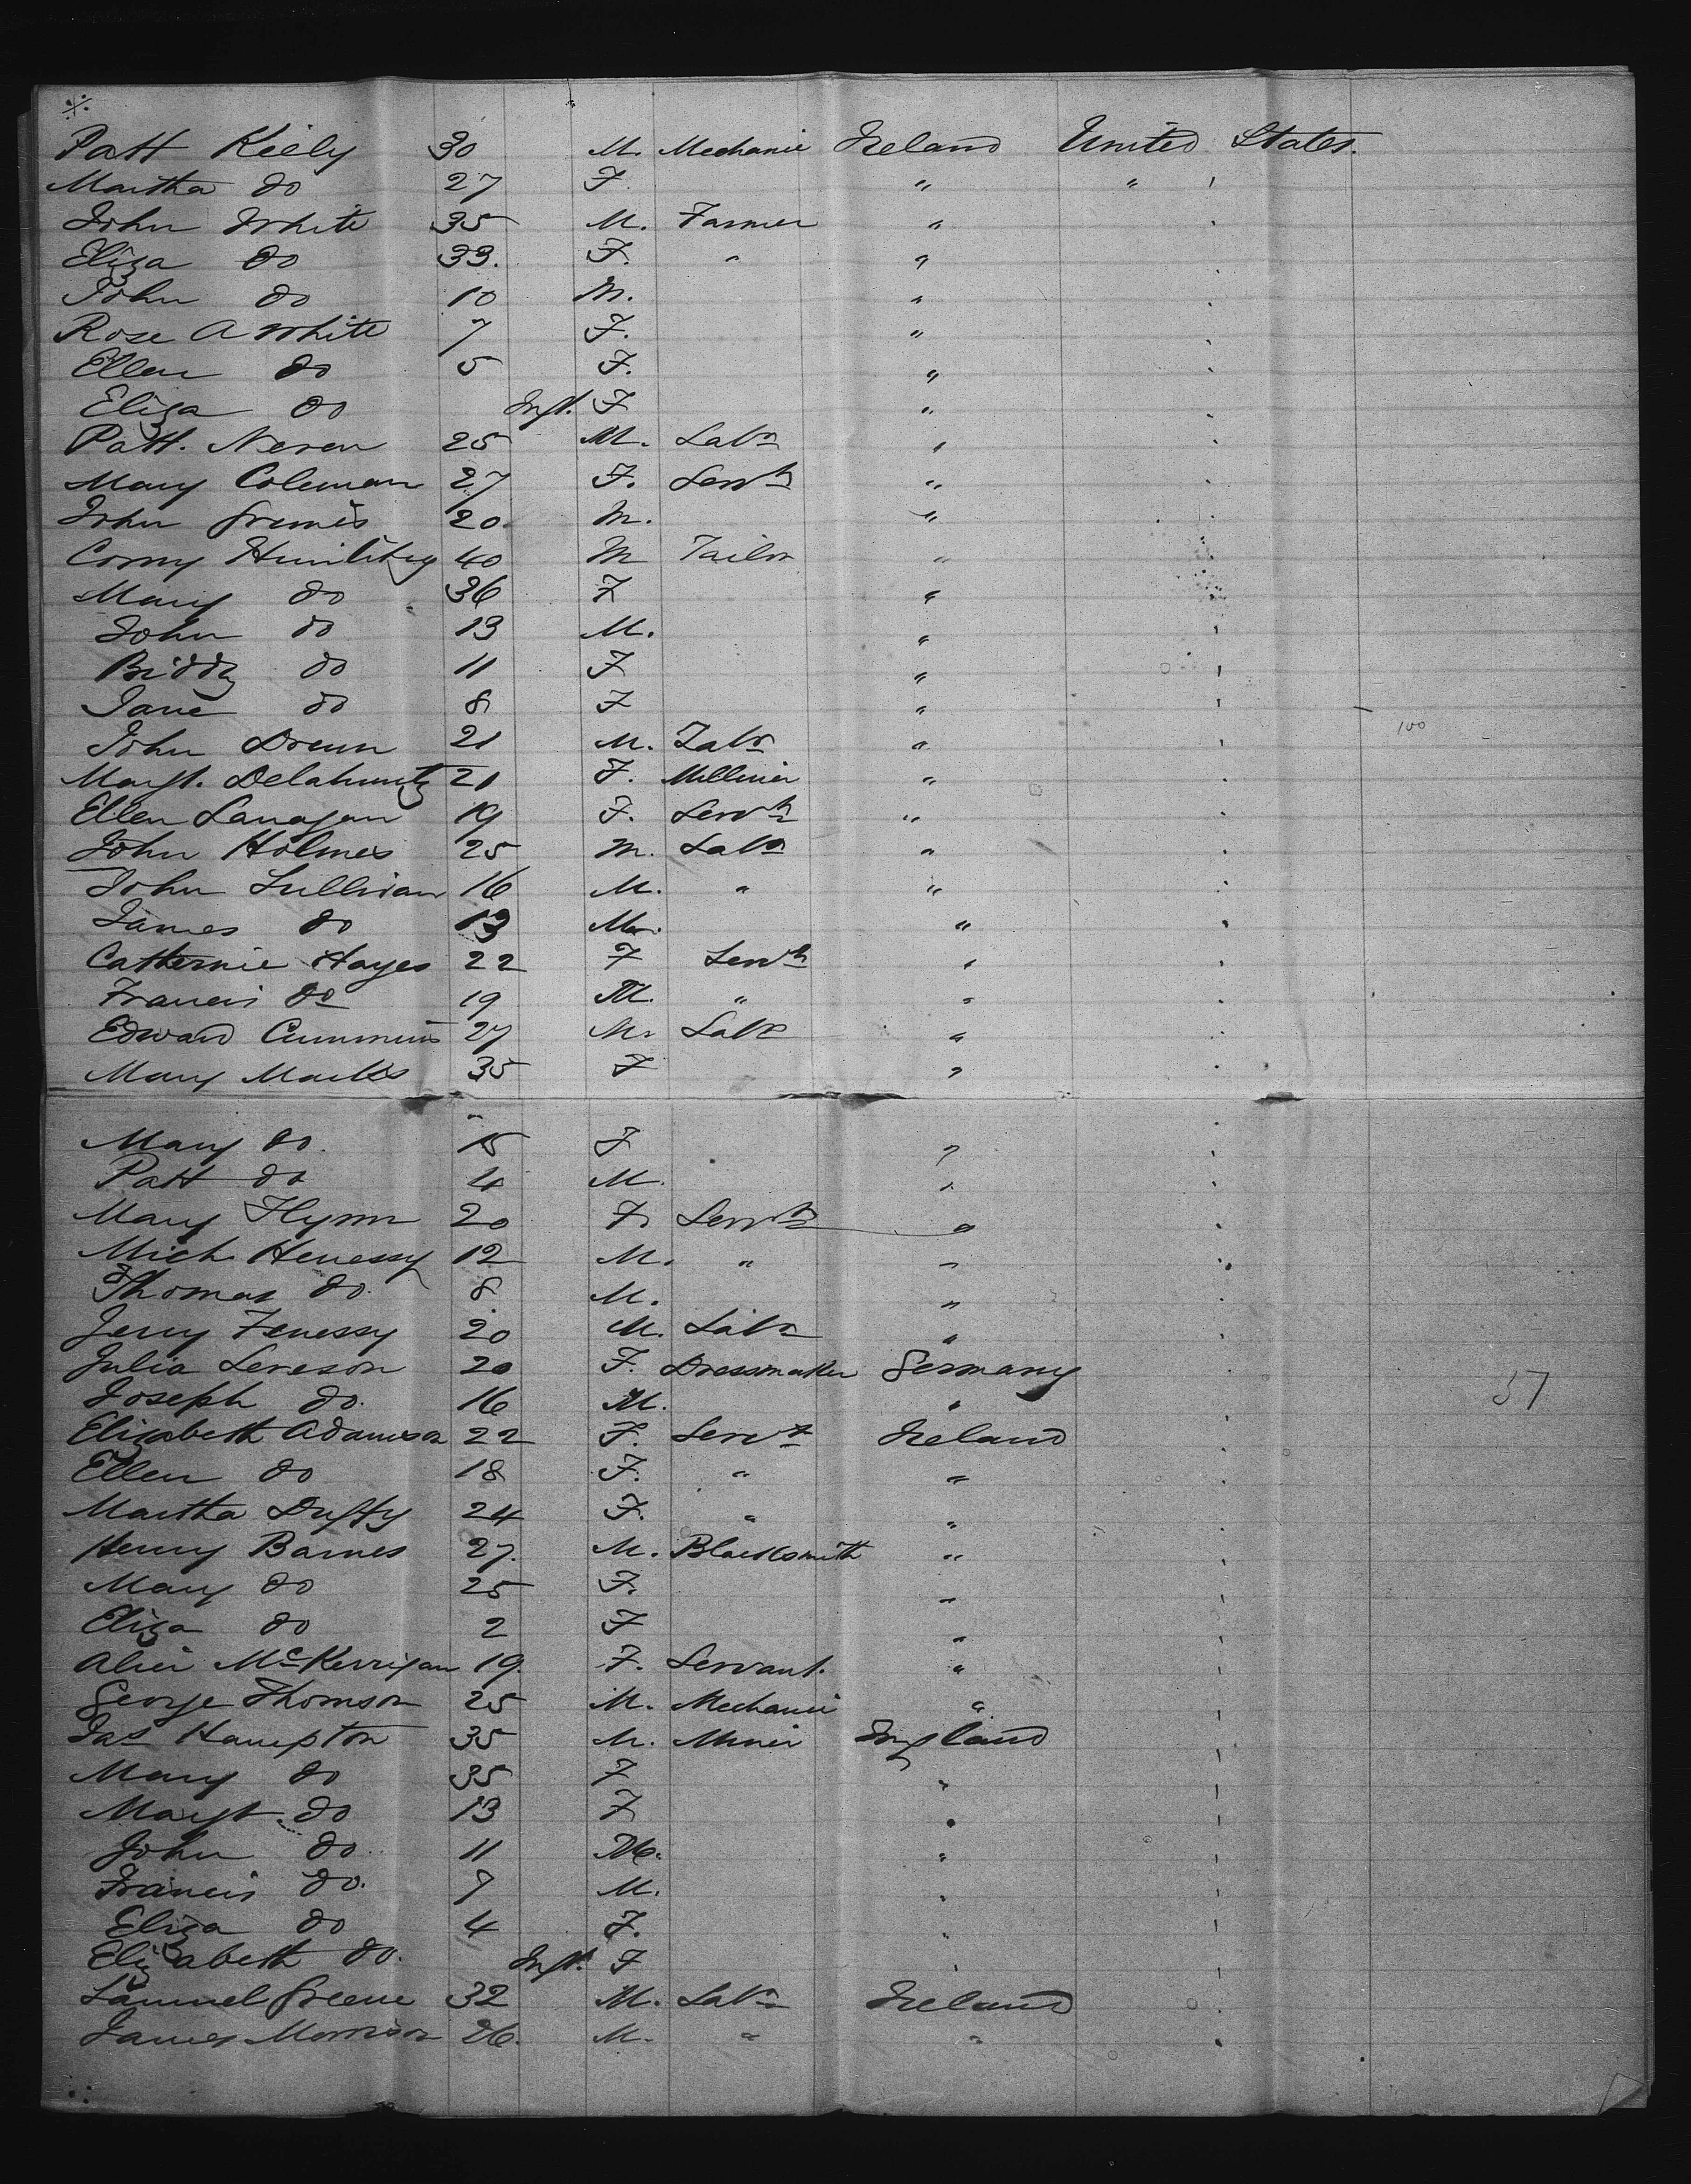 Patt Kiely 30 M. Mechanic Ireland United States.
Martha do 27 F. " "
John White 35 M. Farmer "
Eliza do 33. F. " "
John do 10 M. "
Rose A White 7 F. "
Ellen do 5 F. "
Eliza do Inft. F "
Patt. Neven 25 M. Labr "
Mary Coleman 27 F. Servt "
John Grimes 20. M. "
Corny 40 M Tailor "
Mary do 36 F "
John do 13 M. "
Biddy do 11 F "
Jane do 8 F "
John Drenn 21 M. Labr " 100
Margt. Delahunty 21 F. Milliner "
Ellen Lanagan 19 F. Servt "
John Holmes 25 M. Labr "
John Sullivan 16 M. " "
James do 13 M. "
Catherine Hayes 22 F Servt "
Francis do 19 M. " "
Edward Cummins 27 M. Labr "
Mary Marks 35 F "
Mary do. 15 F "
Patt do 4 M. "
Mary Flynn 20 F. Servt "
Mich Henessy 12 M. " "
Thomas do. 8. M. "
Jerry Fenessy 20 M. Labr "
Julia Leveson 20 F. Dressmaker Germany
Joseph do. 16 M. " 57
Elizabeth Adamson 22 F. Servt Ireland
Ellen do 18 F. " "
Martha Duffy 24 F. " "
Henry Barnes 27. M. Blacksmith "
Mary do 25 F. "
Eliza do 2 F "
Alice McKerrigan 19. F. Servant. "
George Thomson 25 M. Mechanic "
Jas Hampton 35 M. Miner England
Mary do 35 F "
Margt. do 13 F "
John do 11 M. "
Francis do. 7 M. "
Eliza do 4 F. "
Elizabeth do. Inft. F "
Samuel Greene 32 M. Labr Ireland
James Morrison 26. M. " "